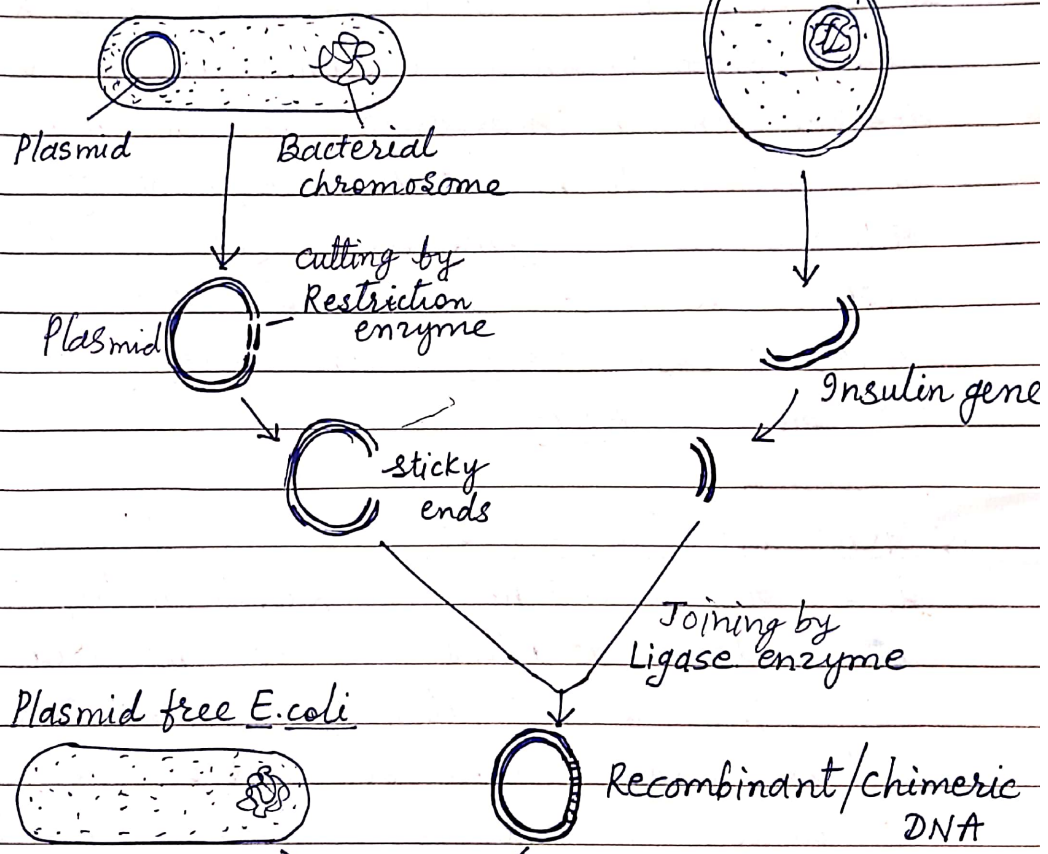 Plasmid
Bacterial
chromosome
cutting by
Restriction
enzyme
Plasmid
Insulin gene
sticky
ends
Joining by
Ligase enzyme
Plasmid free E.coli
Recombinant/Chimeric
DNA